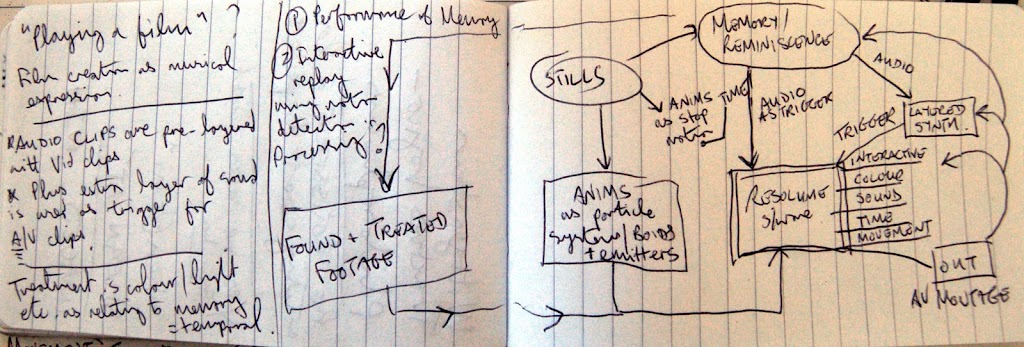 "Playing a film" ?
Film creation as musical
expression.
* AUDIO CLIPS are pre-layered
with Vid clips
* Plus extra layer of sound
is used as trigger for
A/V clips.
Treatment is colour/light
etc. as relating to memory
= temporal.
① Performance of Memory
② Interactive
replay
using motion
detection in
Processing?
FOUND + TREATED
FOOTAGE
STILLS
MEMORY/
REMINISCENCE
ANIMS
as stop
motion
TIME
AUDIO
AS TRIGGER
AUDIO
LAYERED
SYNTH.
TRIGGER
ANIMS
as particle
systems/BOIDS
+ emitters
RESOLUME
s/ware
INTERACTIVE
COLOUR
SOUND
TIME
MOVEMENT
OUT
AV MONTAGE